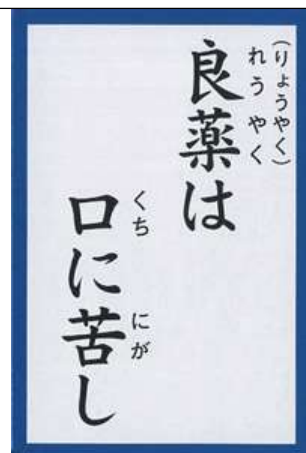 (りょうやく)
れうやく
良薬は
くち にが
口に苦し